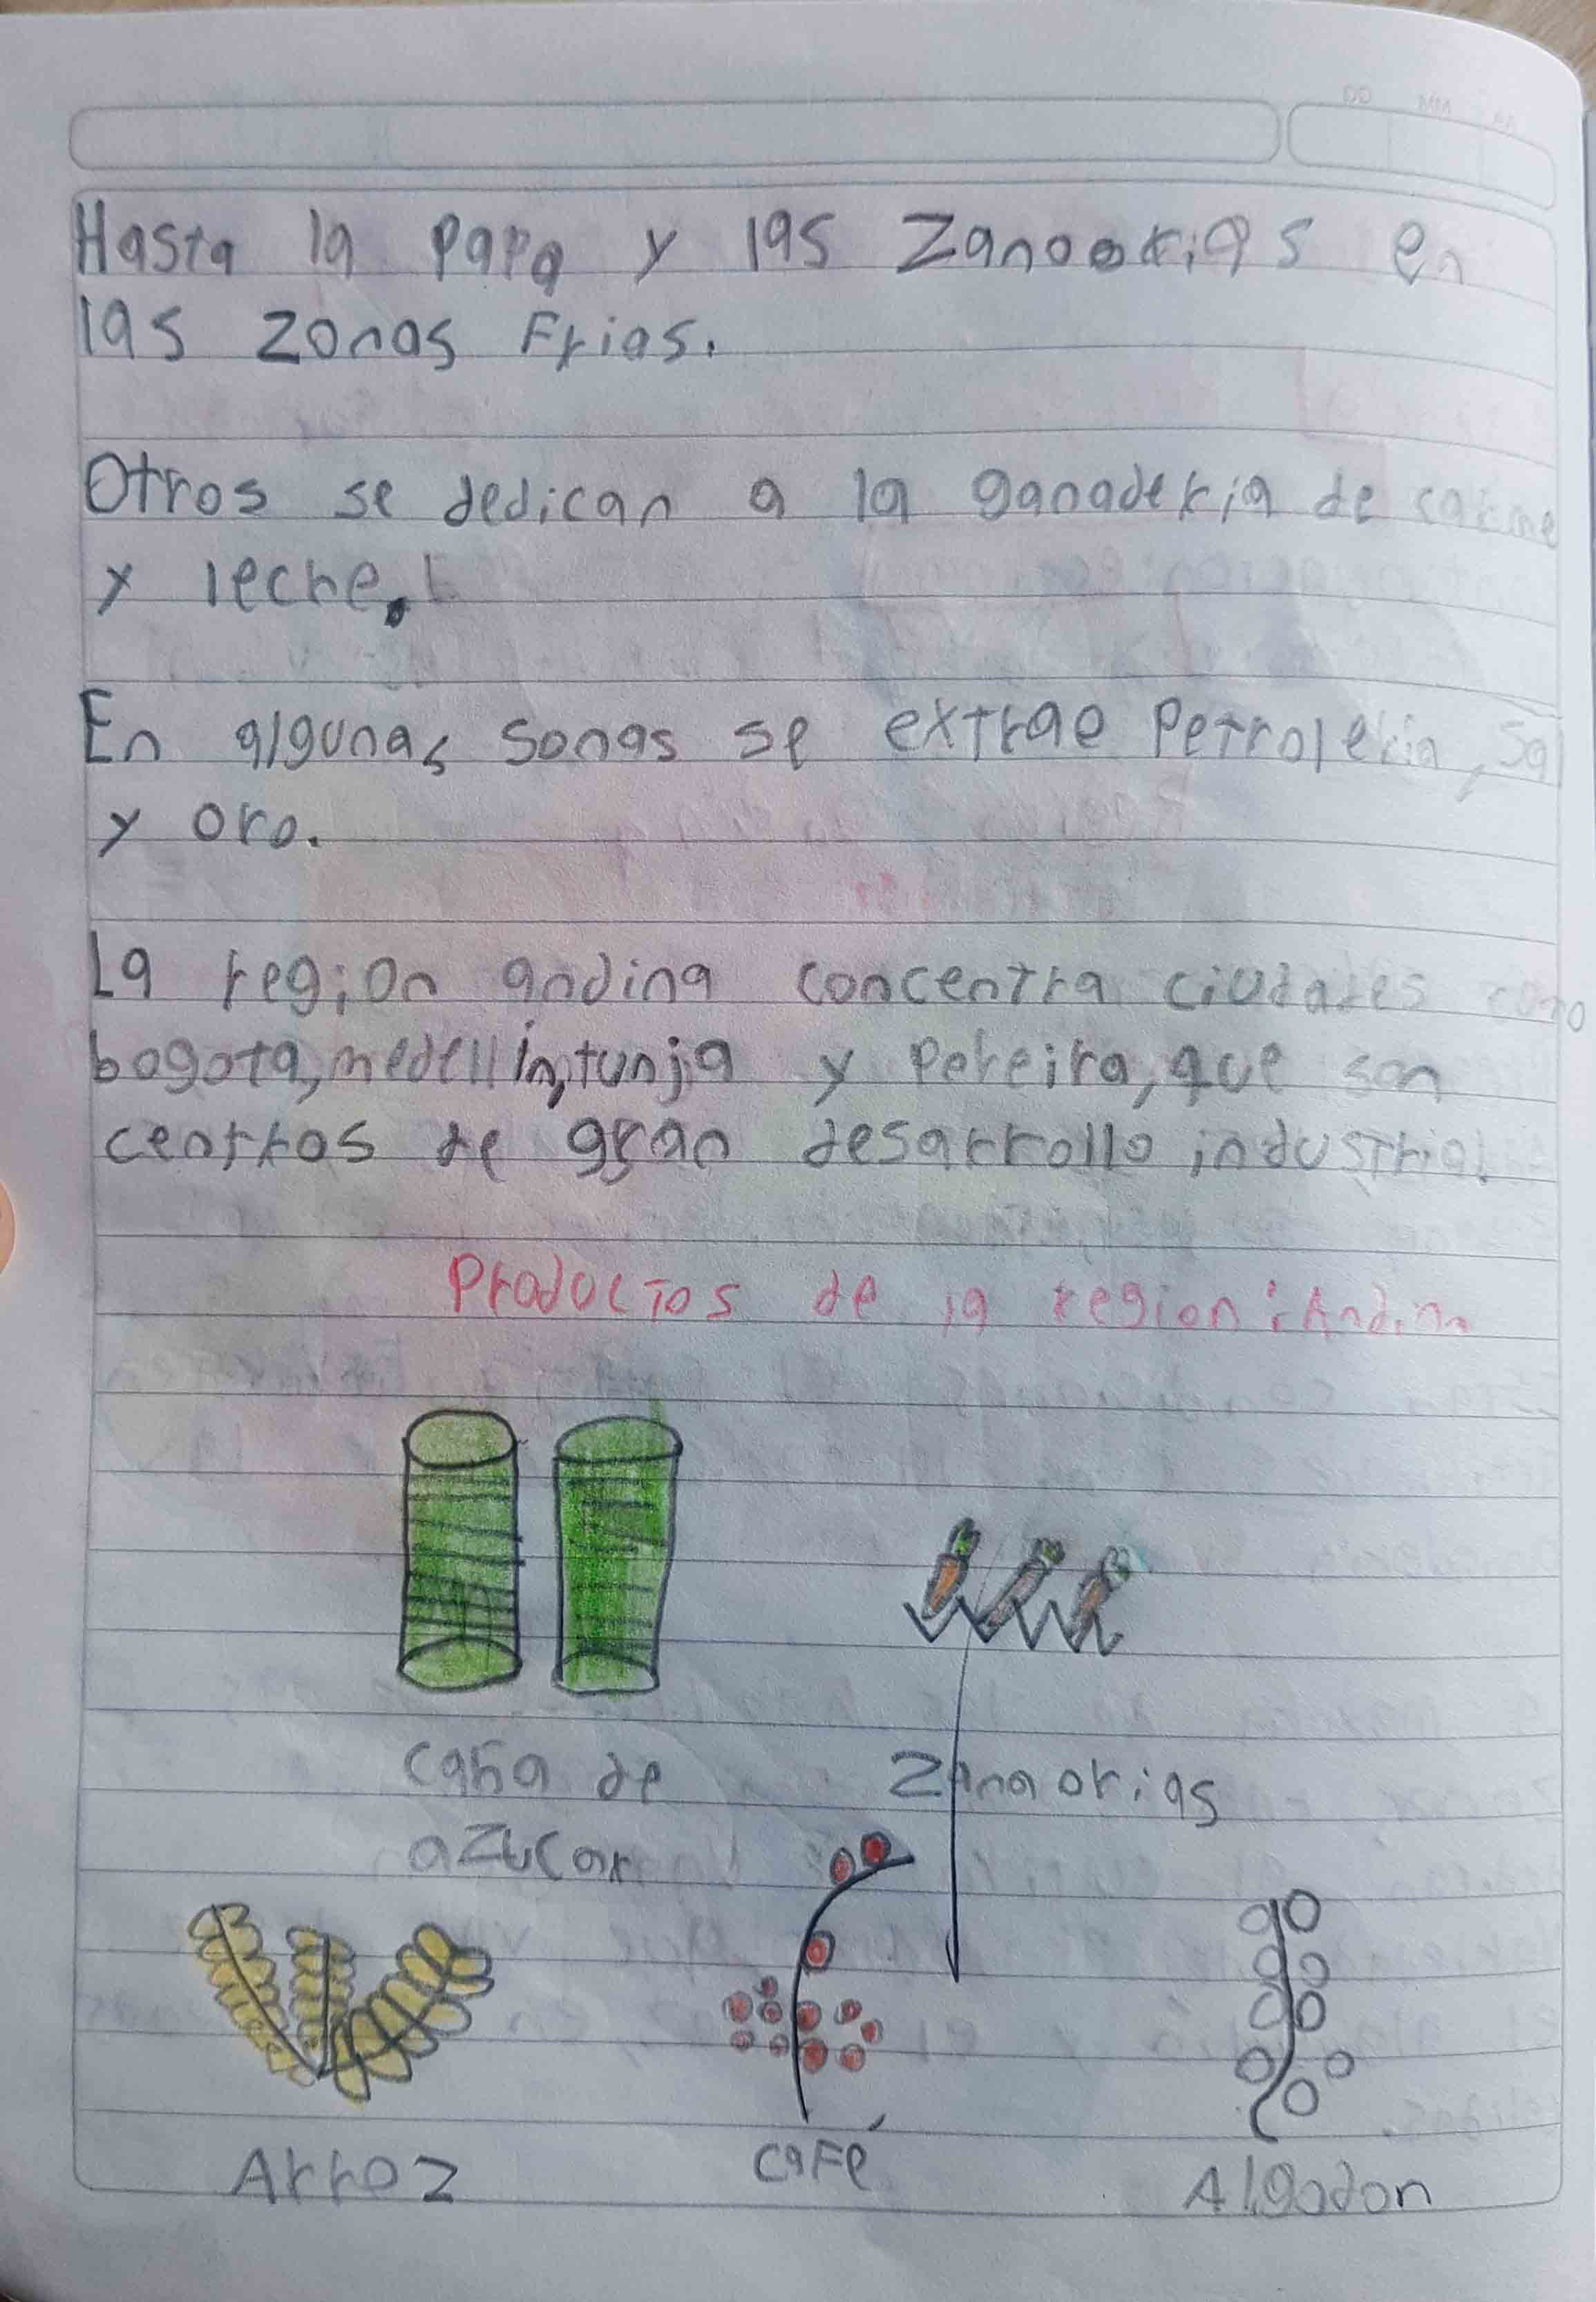 Hasta la Papa y las Zanoorias en
las zonas Frias.
Otros se dedican a la ganaderia de carne
y leche.
En algunas sonas se extrae Petroleria, Sal
y oro.
La region andina concentra ciudades como
bogota, medellin, tunja y Pereira, que son
centros de gran desarrollo industrial.
Productos de la region: Andina
caña de Zanaorias
azucar
Arroz café Algodon